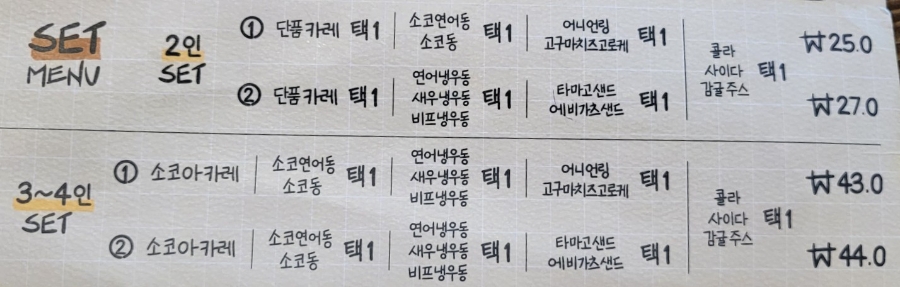 SET
MENU
2인
SET
① 단품카레 택1 소코연어동 소코동 택1 어니언링 고구마치즈고로케 택1
② 단품카레 택1 연어냉우동 새우냉우동 비프냉우동 택1 타마고샌드 에비가츠샌드 택1
콜라
사이다 택1
감귤주스
₩25.0
₩27.0
3~4인
SET
① 소코아카레 소코연어동 소코동 택1 연어냉우동 새우냉우동 비프냉우동 택1 어니언링 고구마치즈고로케 택1
② 소코아카레 소코연어동 소코동 택1 연어냉우동 새우냉우동 비프냉우동 택1 타마고샌드 에비가츠샌드 택1
콜라
사이다 택1
감귤주스
₩43.0
₩44.0